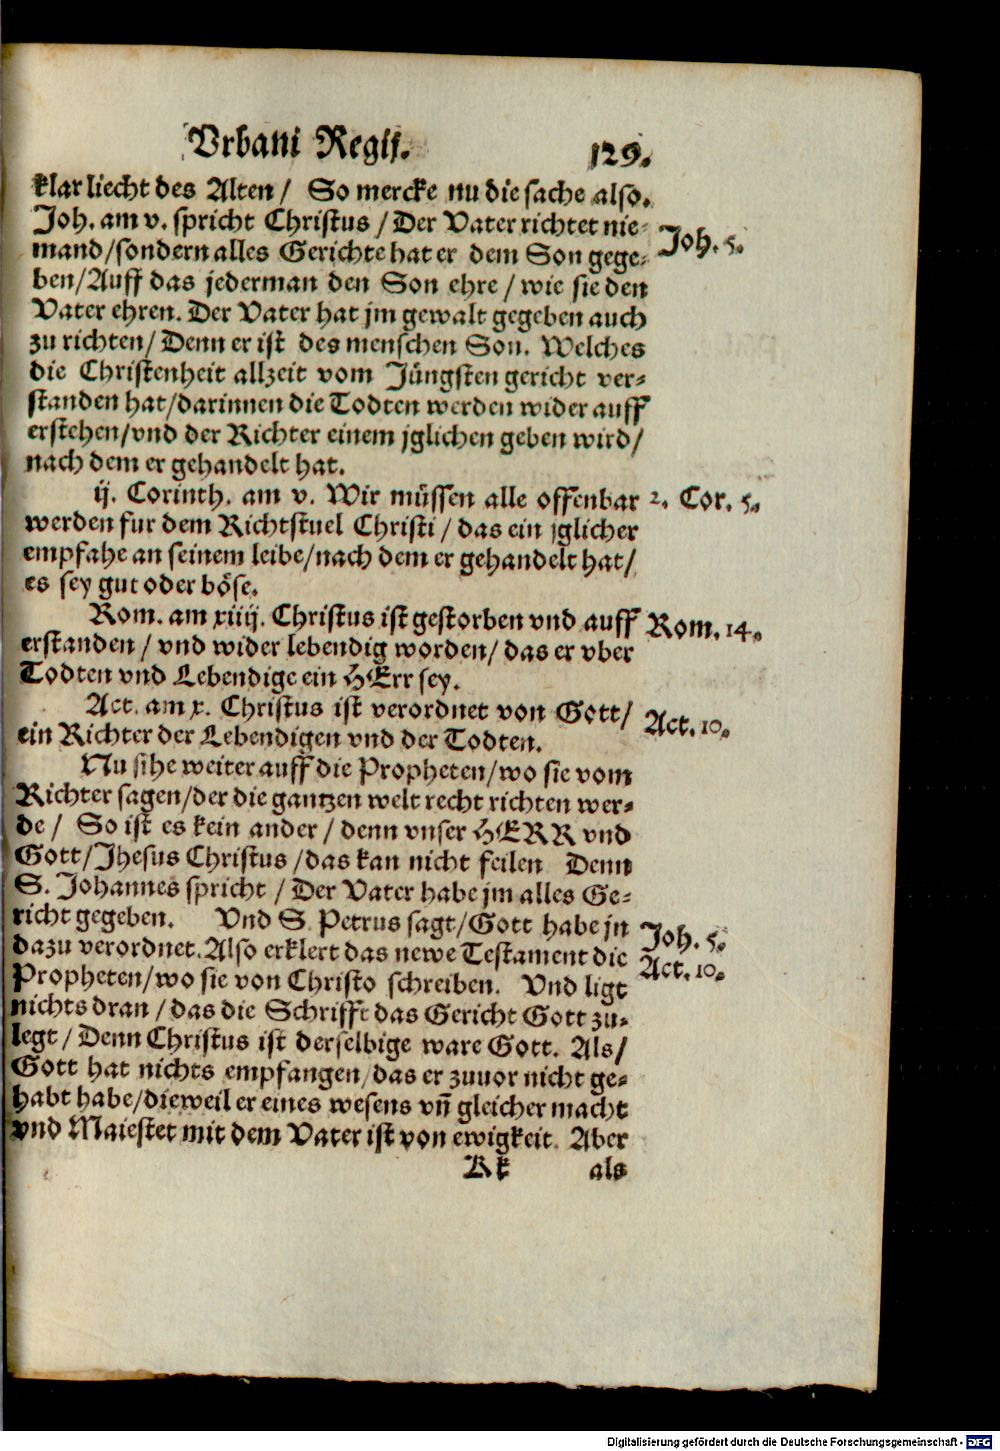 Vrbani Regij. 129.
klar liecht des Alten / So mercke nu die sache also.
Joh. am v. spricht Christus / Der Vater richtet nie-
mand/sondern alles Gerichte hat er dem Son gege- Joh. 5.
ben/Auff das jederman den Son ehre / wie sie den
Vater ehren. Der Vater hat jm gewalt gegeben auch
zu richten/ Denn er ist des menschen Son. Welches
die Christenheit allzeit vom Jüngsten gericht ver-
standen hat/darinnen die Todten werden wider auff
erstehen/vnd der Richter einem jglichen geben wird/
nach dem er gehandelt hat.
ij. Corinth. am v. Wir müssen alle offenbar 2. Cor. 5.
werden fur dem Richtstuel Christi / das ein jglicher
empfahe an seinem leibe/nach dem er gehandelt hat/
es sey gut oder böse.
Rom. am xiiij. Christus ist gestorben vnd auff Rom. 14.
erstanden / vnd wider lebendig worden/ das er vber
Todten vnd Lebendige ein HErr sey.
Act. am x. Christus ist verordnet von Gott/ Act. 10.
ein Richter der Lebendigen vnd der Todten.
Nu sihe weiter auff die Propheten/wo sie vom
Richter sagen/der die gantzen welt recht richten wer-
de / So ist es kein ander / denn vnser HERR vnd
Gott/Jhesus Christus /das kan nicht feilen Denn
S. Johannes spricht / Der Vater habe jm alles Ge-
richt gegeben. Vnd S. Petrus sagt/Gott habe jn Joh. 5.
dazu verordnet. Also erklert das newe Testament die Act. 10.
Propheten/wo sie von Christo schreiben. Vnd ligt
nichts dran / das die Schrifft das Gericht Gott zu-
legt / Denn Christus ist derselbige ware Gott. Als/
Gott hat nichts empfangen/das er zuuor nicht ge-
habt habe/dieweil er eines wesens vn̄ gleicher macht
vnd Maiestet mit dem Vater ist von ewigkeit. Aber
Kk als
Digitalisierung gefördert durch die Deutsche Forschungsgemeinschaft - DFG